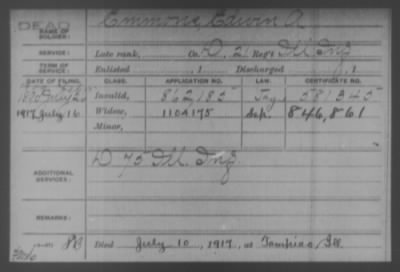 DEAD
NAME OF SOLDIER: Emmons, Edwin A.
SERVICE: Late rank, Co. D, 21 Reg't Ill. Inf.
TERM OF SERVICE: Enlisted , 1 Discharged , 1
DATE OF FILING. CLASS. APPLICATION NO. LAW. CERTIFICATE NO.
1890 July Invalid, 862,185 581345
1917 July 16 Widow, 1104,175 846,861
Minor,
ADDITIONAL SERVICES: D 75 Ill. Inf.
REMARKS:
Died July 10, 1917, at Tampico, Ill